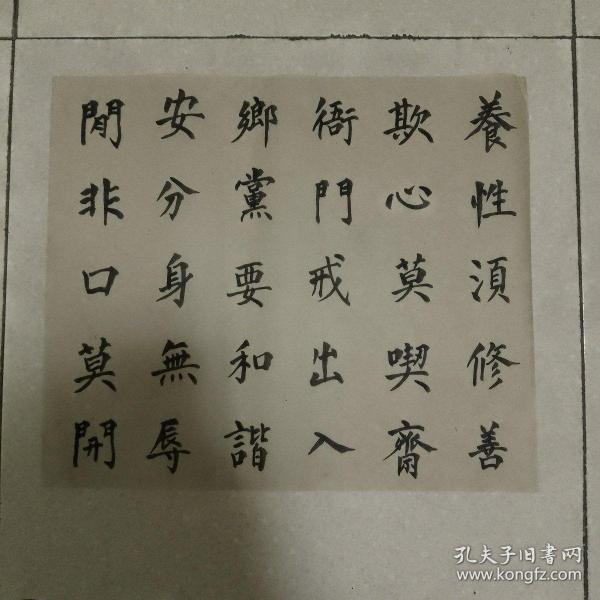 養性湏修善
欺心莫喫齋
衙門戒出入
鄉黨要和諧
安分身無辱
閒非口莫開
孔夫子旧书网
www.kongfz.com